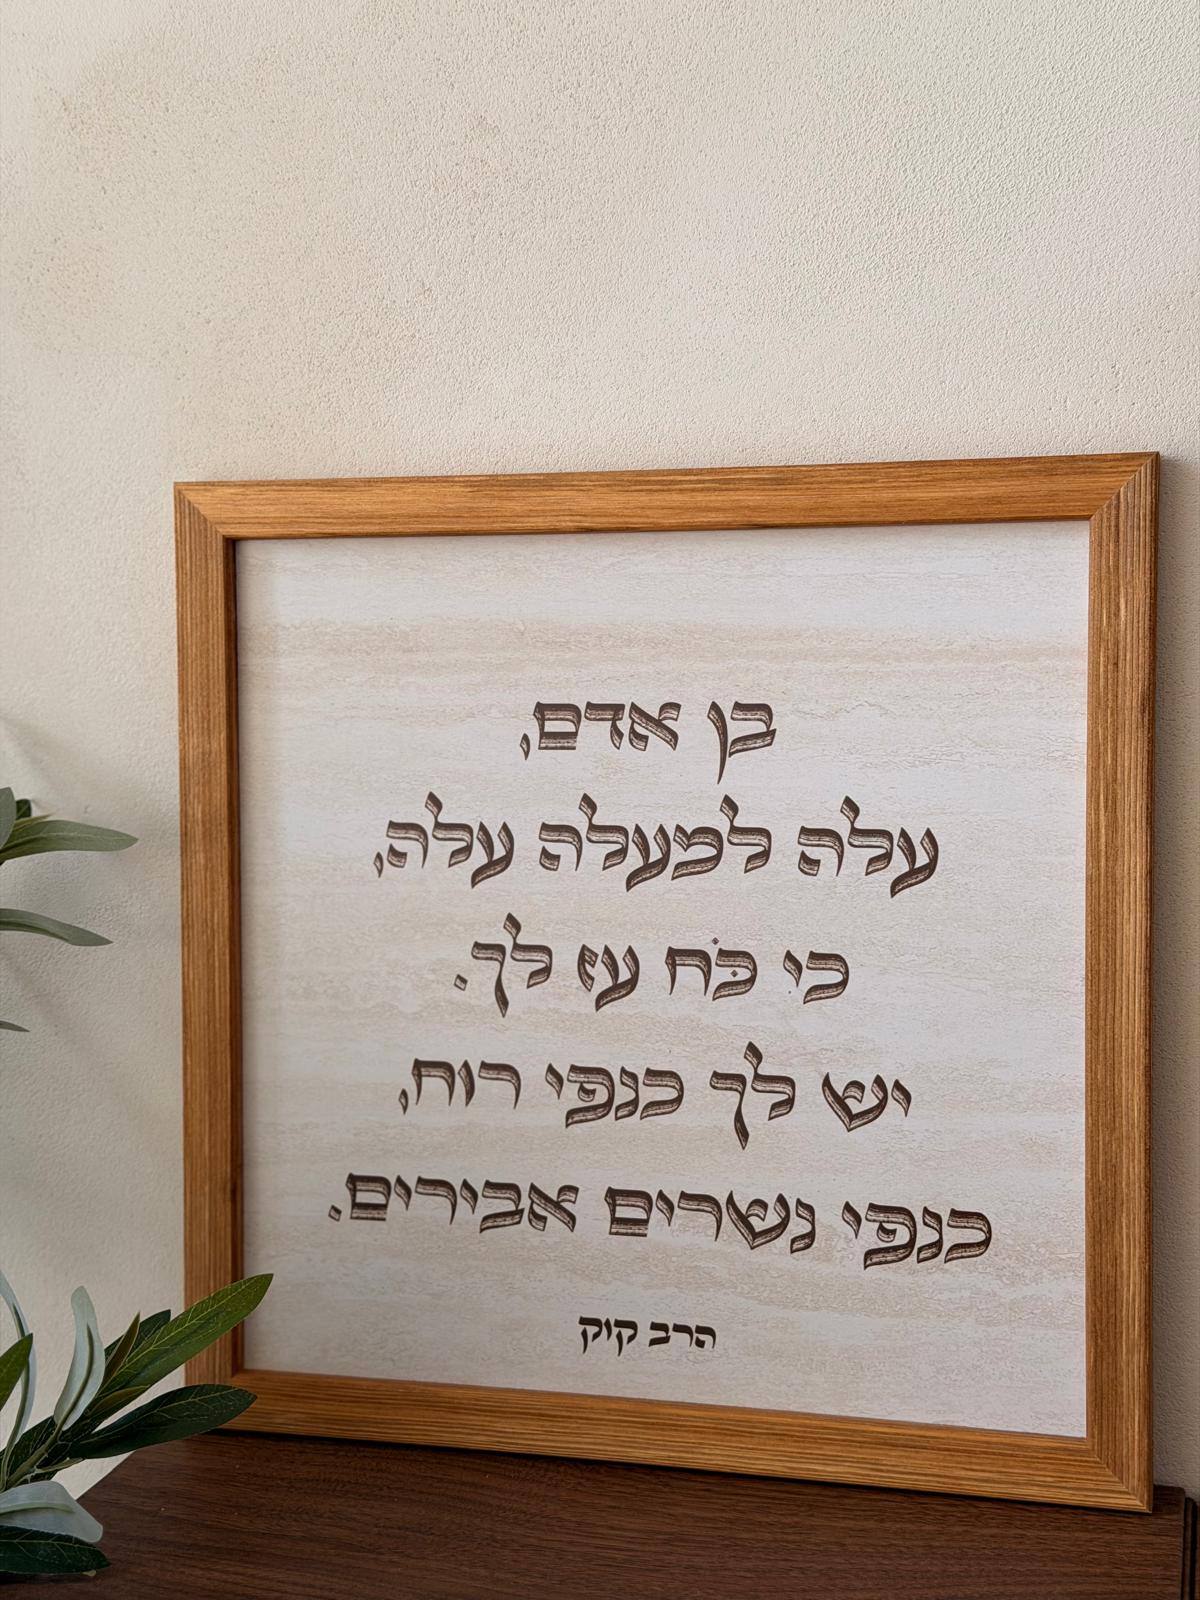 בן אדם,
עלה למעלה עלה,
כי כֹּח עז לך.
יש לך כנפי רוח,
כנפי נשרים אבירים.
הרב קוק